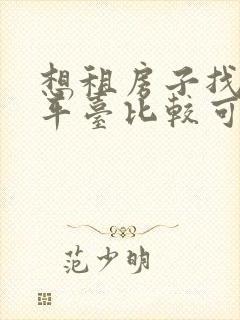 想租房子找
平臺比較可
范少明